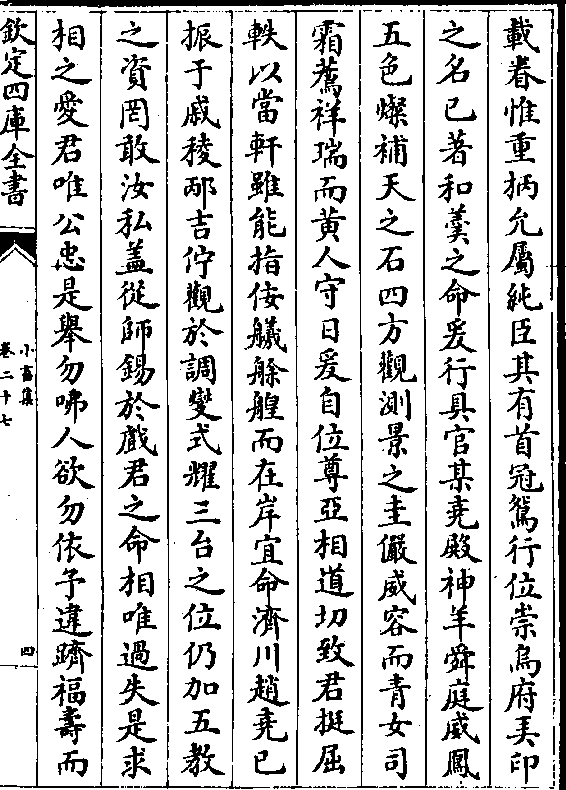 載眷惟重柄允屬純臣其有首冠鴛行位崇烏府美印
之名已著和羹之命爰行具官某堯殿神羊舜庭威鳳
五色燦補天之石四方觀測景之圭儼威容而青女司
霜薦祥瑞而黄人守日爰自位尊亞相道切致君挺屈
軼以當軒雖能指佞艤艅艎而在岸宜命濟川趙堯已
振于戚稜邴吉佇觀於調燮式耀三台之位仍加五教
之資罔敢汝私盖從師錫於戲君之命相唯過失是求
相之愛君唯公忠是舉勿咈人欲勿依予違躋福壽而
欽定四庫全書
小畜集
卷二十七
四